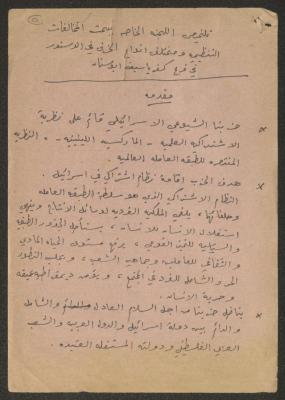 تلخيص اللجنه الخاصه ببحث المخالفات
التنظيميه ومختلف انواع الخرق في الدستور
في فرع كفرياسيف ابوسنان
مقدمه
* حزبنا الشيوعي الاسرائيلي قائم على نظرية
الاشتراكيه العلميه - الماركسيه اللينينيه - النظريه
المنتصره للطبقه العامله العالميه.
* هدف الحزب اقامة نظام اشتراكي في اسرائيل.
النظام الاشتراكي الذي هو سلطة الطبقه العامله
وحلفائها، يلغي الملكيه الفرديه لوسائل الانتاج وينهي
استغلال الانسان للانسان، يستأصل الجذور الطبقيه
والسياسيه للغبن القومي، يرفع مستوى الحياه المادي
والثقافي للعامله وجماهير الشعب، التطور
الحر والشامل للفرد في المجتمع، ويؤمن ديمقراطيه عميقه
وحرية الانسان.
* يناضل حزبنا من اجل السلام العادل والشامل
والدائم بين دولة اسرائيل والدول العربيه والشعب
العربي الفلسطيني ودولته المستقله العتيده.